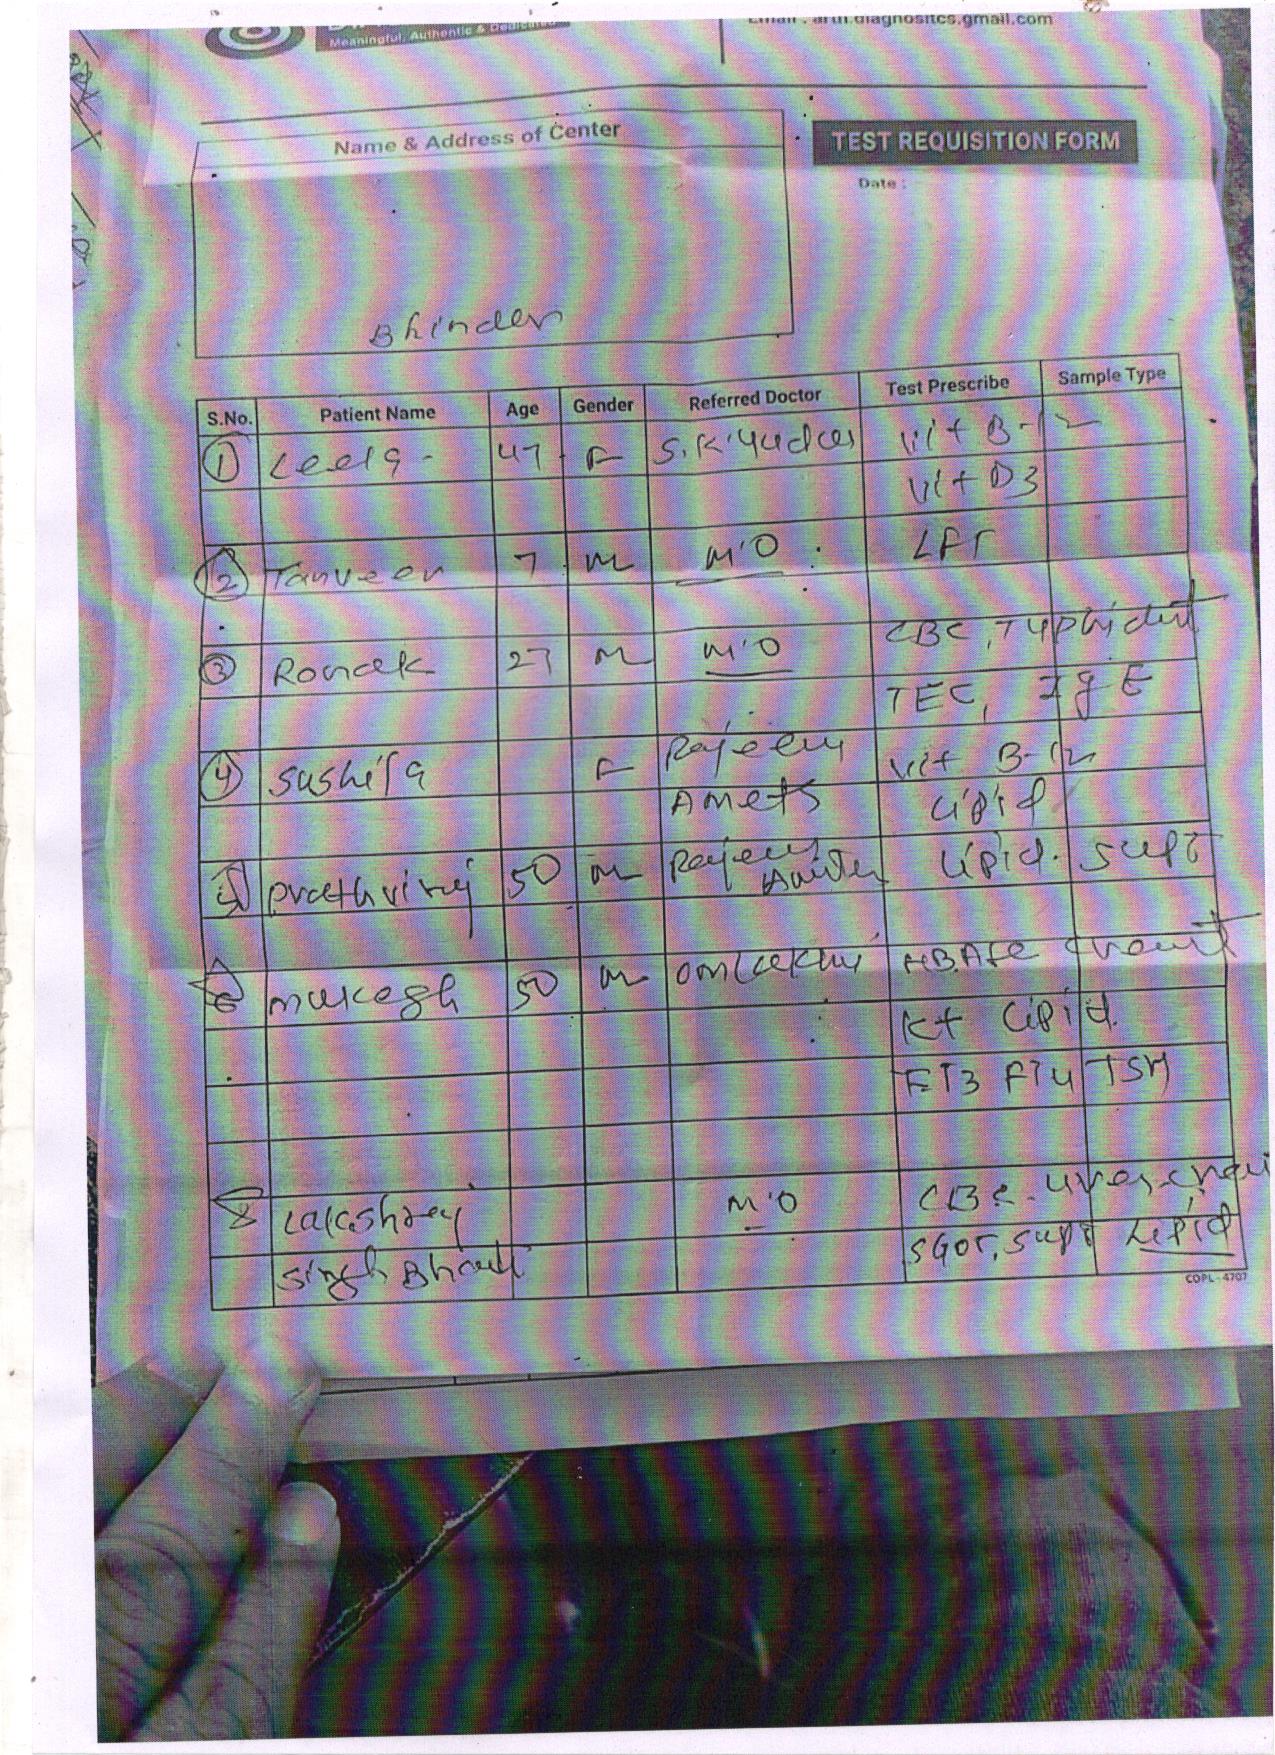 Meaningful, Authentic & Dedicated
Email : arth.diagnositcs.gmail.com
Name & Address of Center
TEST REQUISITION FORM
Date :
Bhinder
S.No. Patient Name Age Gender Referred Doctor Test Prescribe Sample Type
1 Leela 47 F S.K. Vit B-12
Vit D3
2 Tanveer 7 M M.O LFT
3 Ronak 27 M M.O CBC, Typhidut
TEC, IgE
4 Sushila F Rajeev Vit B-12
Ameta Lipid
5 50 M Rajeev Lipid. SGPT
Ameta
6 Mukesh 50 M HBA1c
Lipid
FT3 FT4 TSH
8 M.O CBC
Singh SGOT, SGPT Lipid
COPL-4707